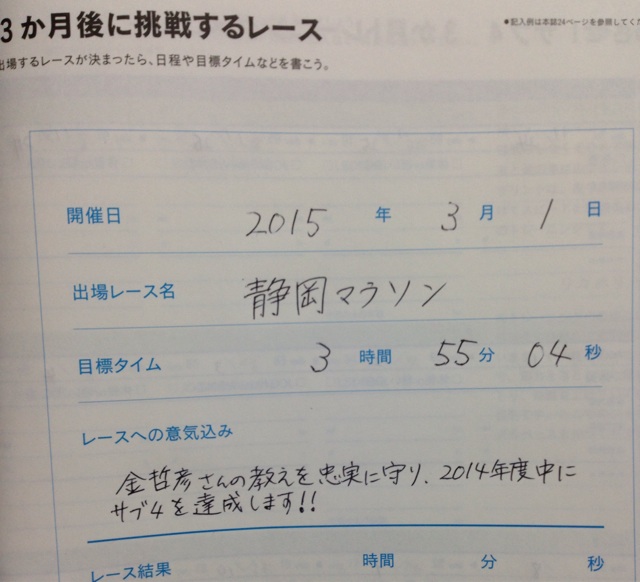 3か月後に挑戦するレース
●記入例は本誌24ページを参照してくだ
出場するレースが決まったら、日程や目標タイムなどを書こう。
開催日 2015 年 3 月 1 日
出場レース名 静岡マラソン
目標タイム 3 時間 55 分 04 秒
レースへの意気込み
金哲彦さんの教えを忠実に守り、2014年度中に
サブ4を達成します!!
レース結果 時間 分 秒